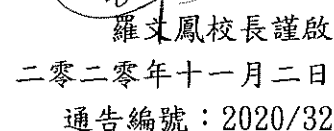 羅文鳳校長謹啟
二零二零年十一月二日
通告編號：2020/32